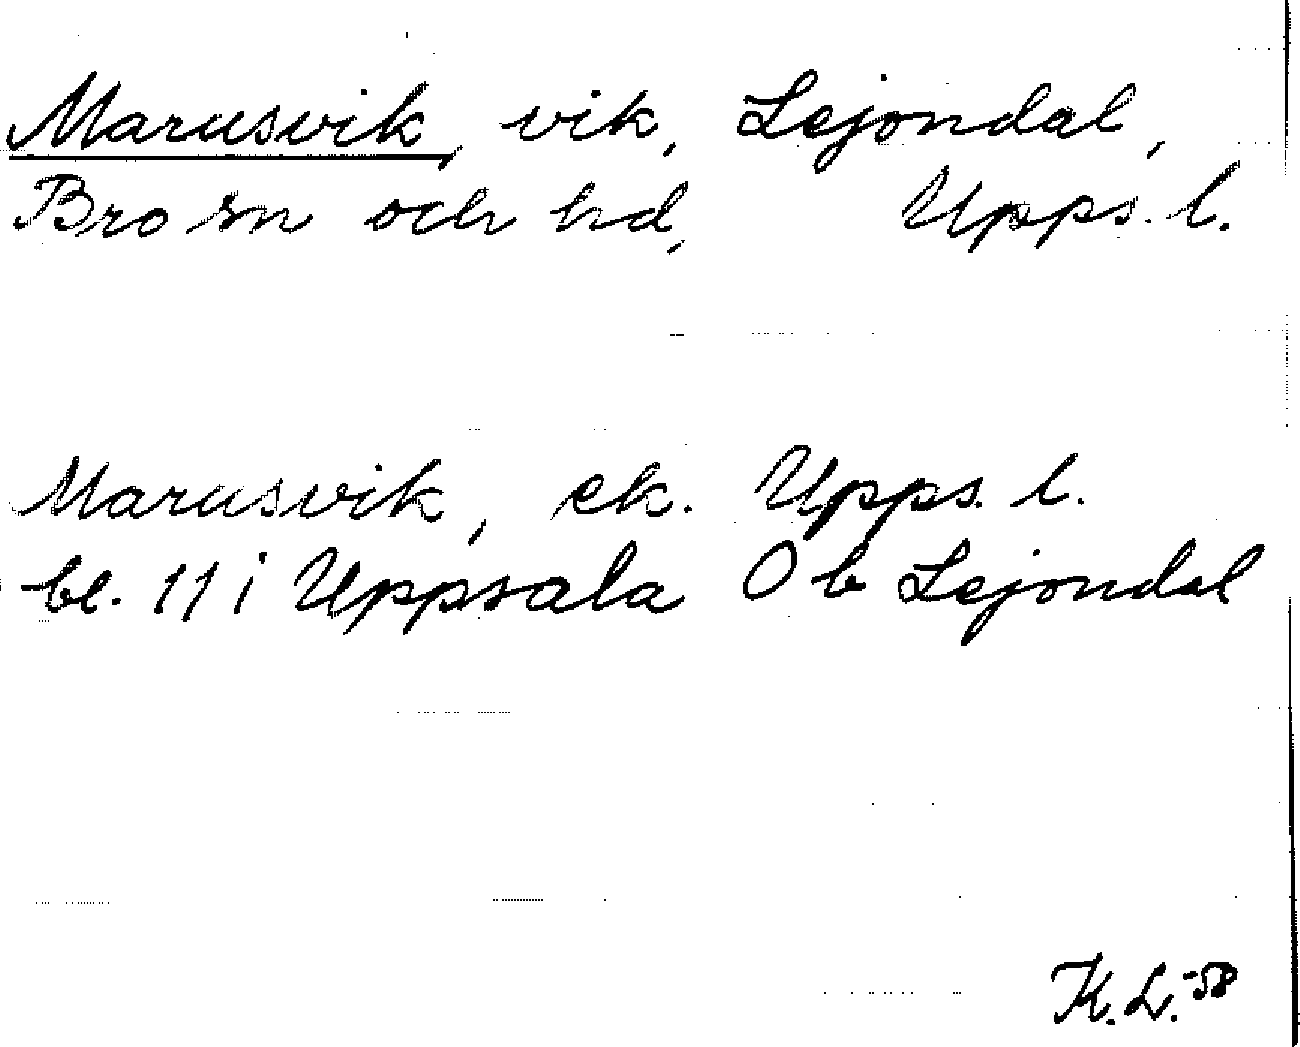 Marusvik, vik, Lejondal,
Bro sn och hd, Upps. l.
Marusvik, ek. Upps. l.
bl. 11 i Uppsala O b Lejondal
K.L.-58